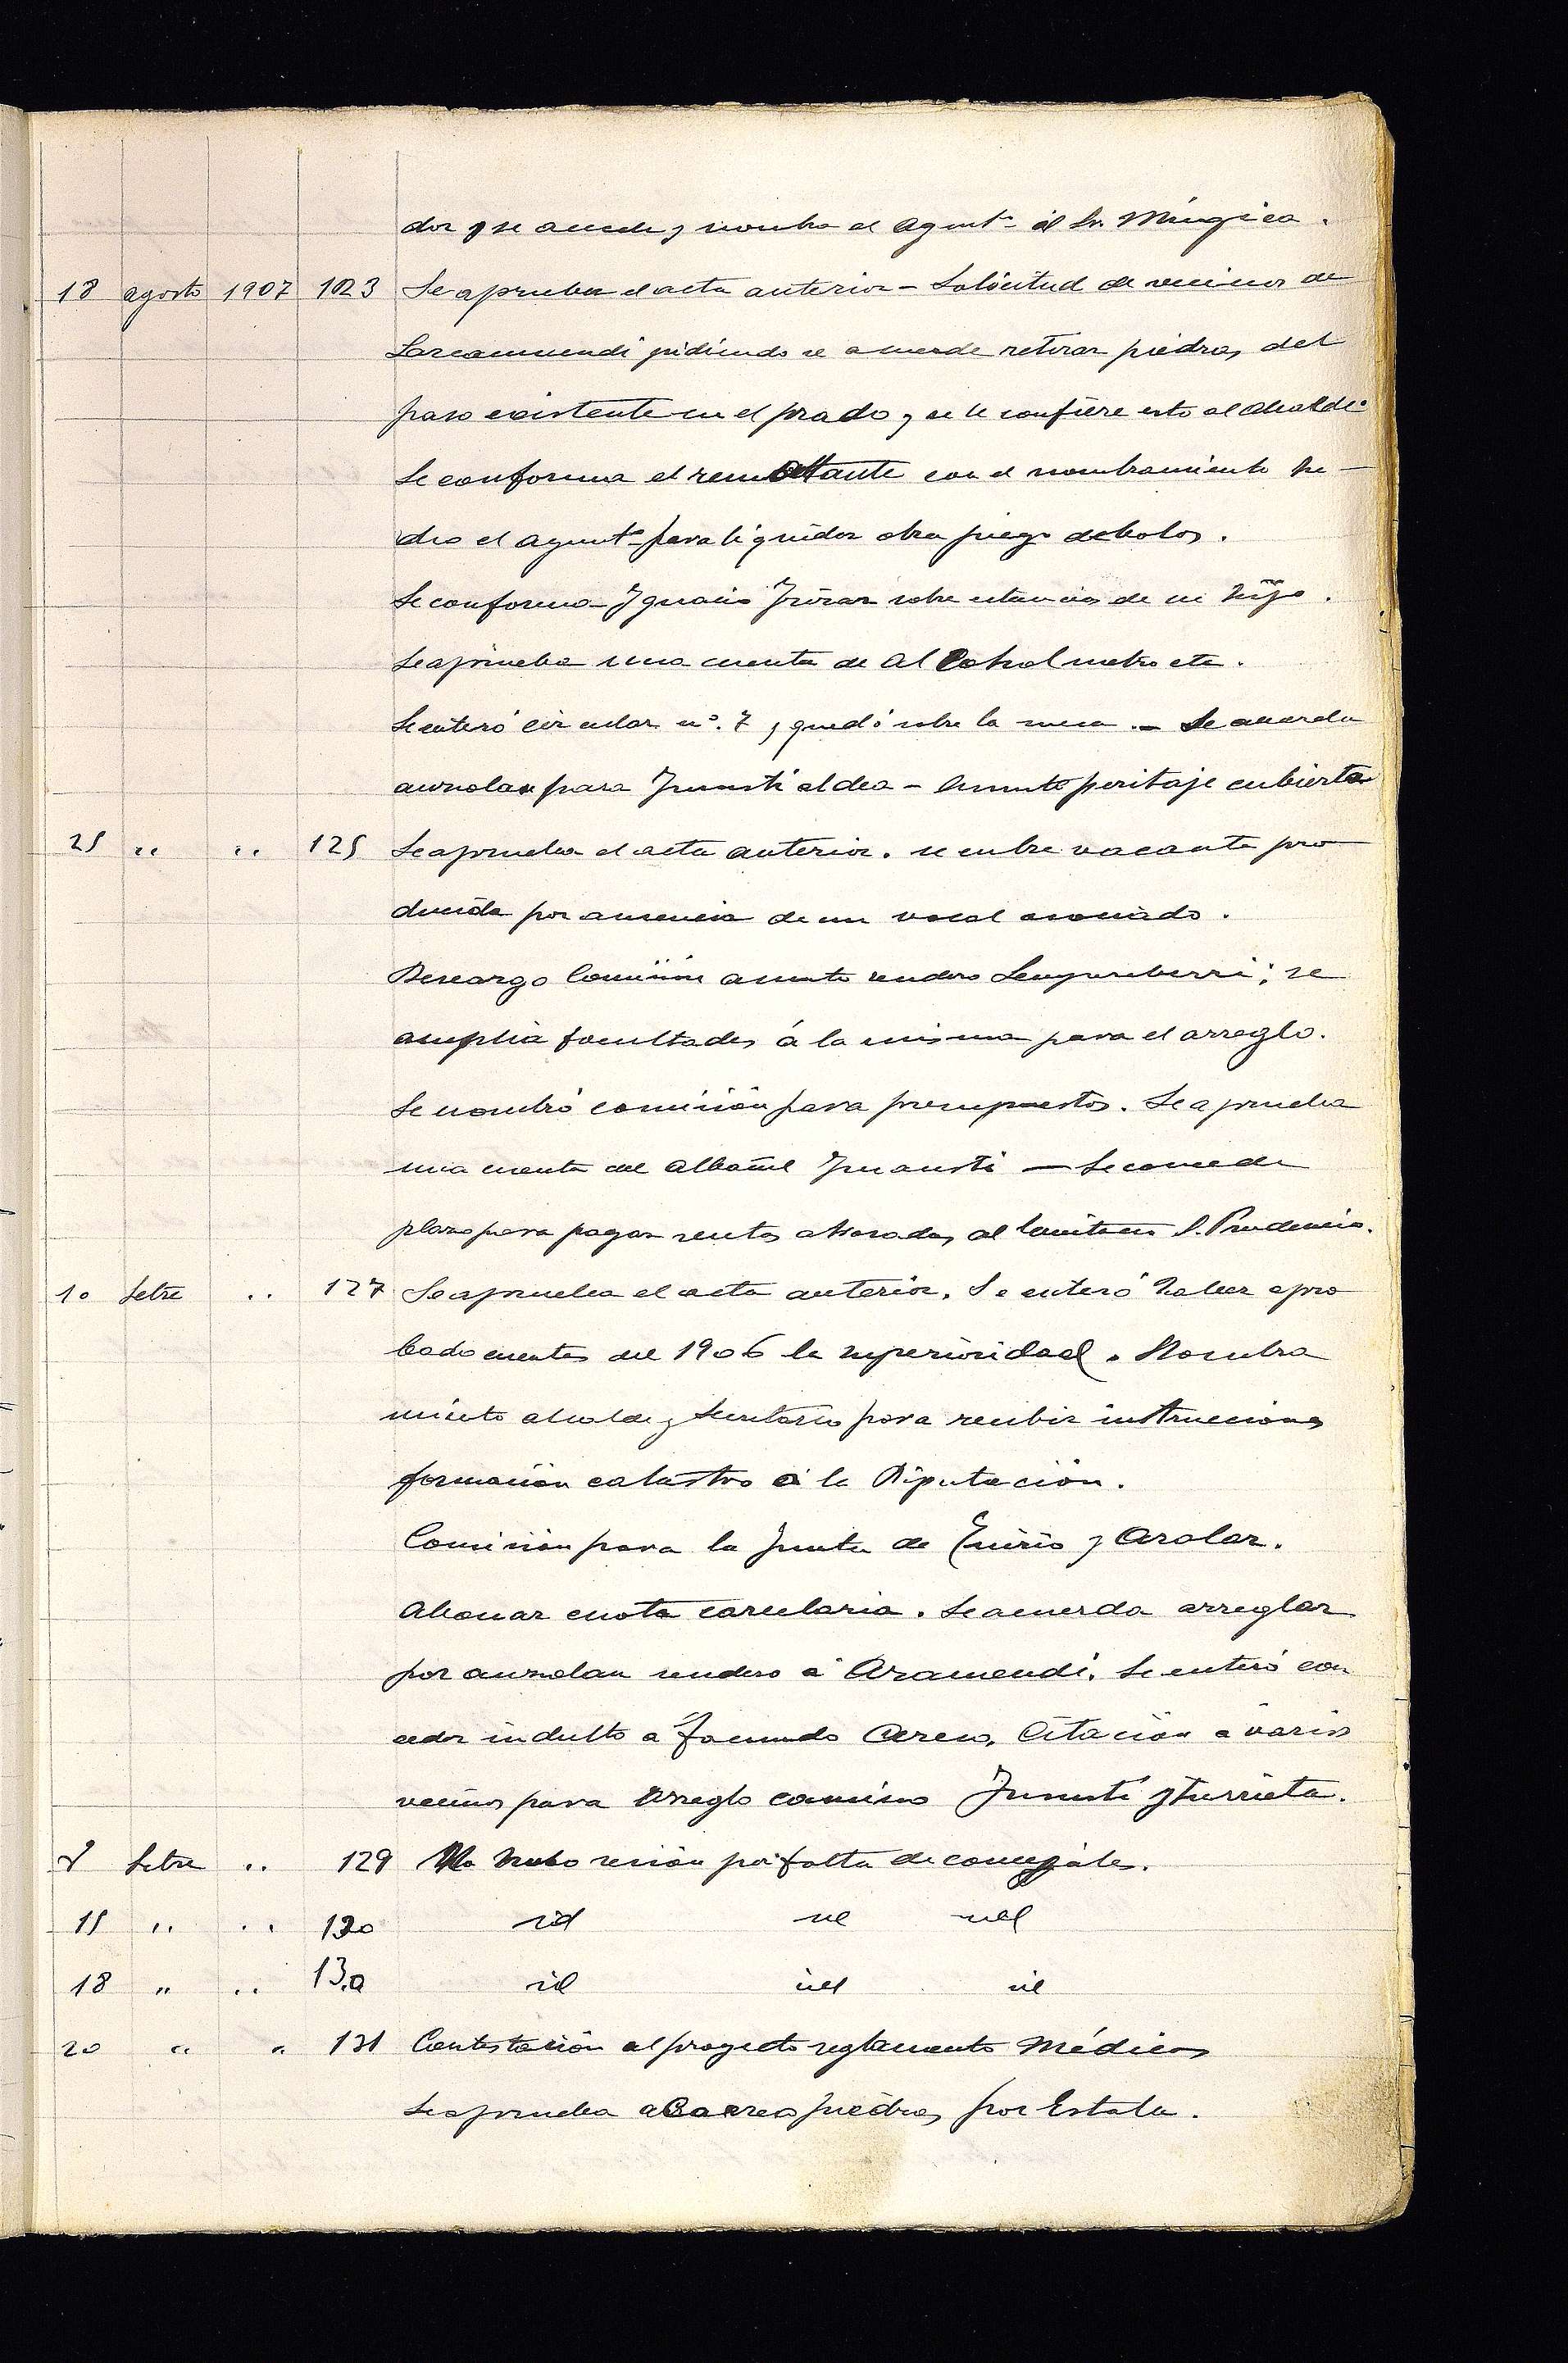 dor y se accede y nombra el Ayunt.º al Sr. Múgica.
18 agosto 1907 123 Se aprueba el acta anterior – Solicitud de vecinos de
pidiendo se acuerde retirar piedras del
paso existente en el prado y se le confiere esto al Alcalde.
Se conforma el rematante con el nombramiento he-
cho el ayunt.º para liquidar obra juego de bolos.
Se conforma Ignacio sobre estancias de su hijo.
Se aprueba una cuenta de Alcoholmetro etc.
Se enteró circular nº. 7 y quedó sobre la mesa. – Se acuerda
auzolan para aldea – Asunto peritaje cubierta
25 " " 125 Se aprueba el acta anterior. se cubre vacante pro
ducida por ausencia de un vocal asociado.
Descargo Comisión asunto sendero ; se
amplía facultades á la misma para el arreglo.
Se nombró comisión para presupuestos. Se aprueba
una cuenta del Albañil Inausti — Se concede
plazo para pagar rentas atrasadas al S. Prudencio.
1º Setre " 127 Se aprueba el acta anterior. Se enteró haber apro
bado cuentas del 1906 la superioridad. Nombra
miento alcalde y Secretario para recibir instrucciones
formación catastro á la Diputación.
Comisión para la Junta de Enirio y Aralar.
Abonar cuota carcelaria. Se acuerda arreglar
por auzolan sendero á Aramendi. Se enteró con
ceder indulto a Facundo Citación a varios
vecinos para arreglo camino Iturrieta.
8 Setre " 129 No hubo sesión por falta de concejales.
15 " " 130 id id id
18 " " 130 id id id
20 " " 131 Contestación al proyecto reglamento Médicos
Se aprueba acarreo piedras por Estala.